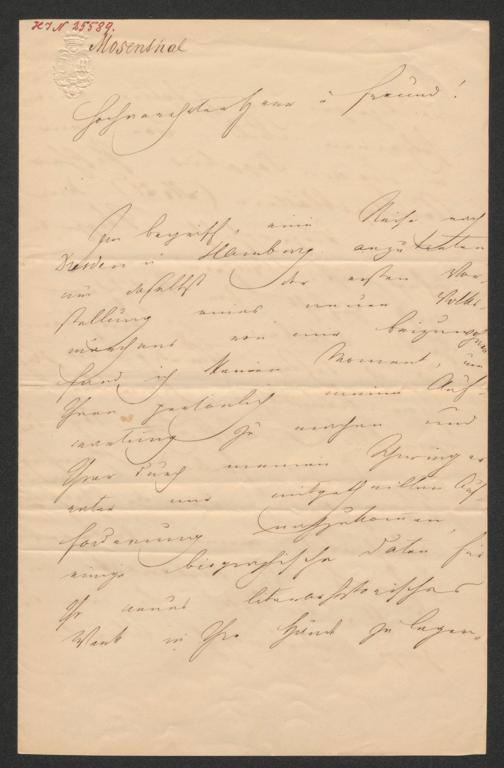 HIN 25589.
Mosenthal
Hochverehrter Herr u Freund!
Im Begriffe, eine Reise nach
Dresden u Hamburg anzutreten
um daselbst der ersten Vor-
stellung eines neuen Volks
märchens von mir beizuwohnen
fand ich keinen Moment, um
Ihnen persönlich meine Auf-
wartung zu machen und
Ihrer durch meinen
mir mitgetheilten Auf-
forderung nachzukommen,
einige biographische Daten für
Ihr neues literarhistorisches
Werk in Ihre Hände zu legen.